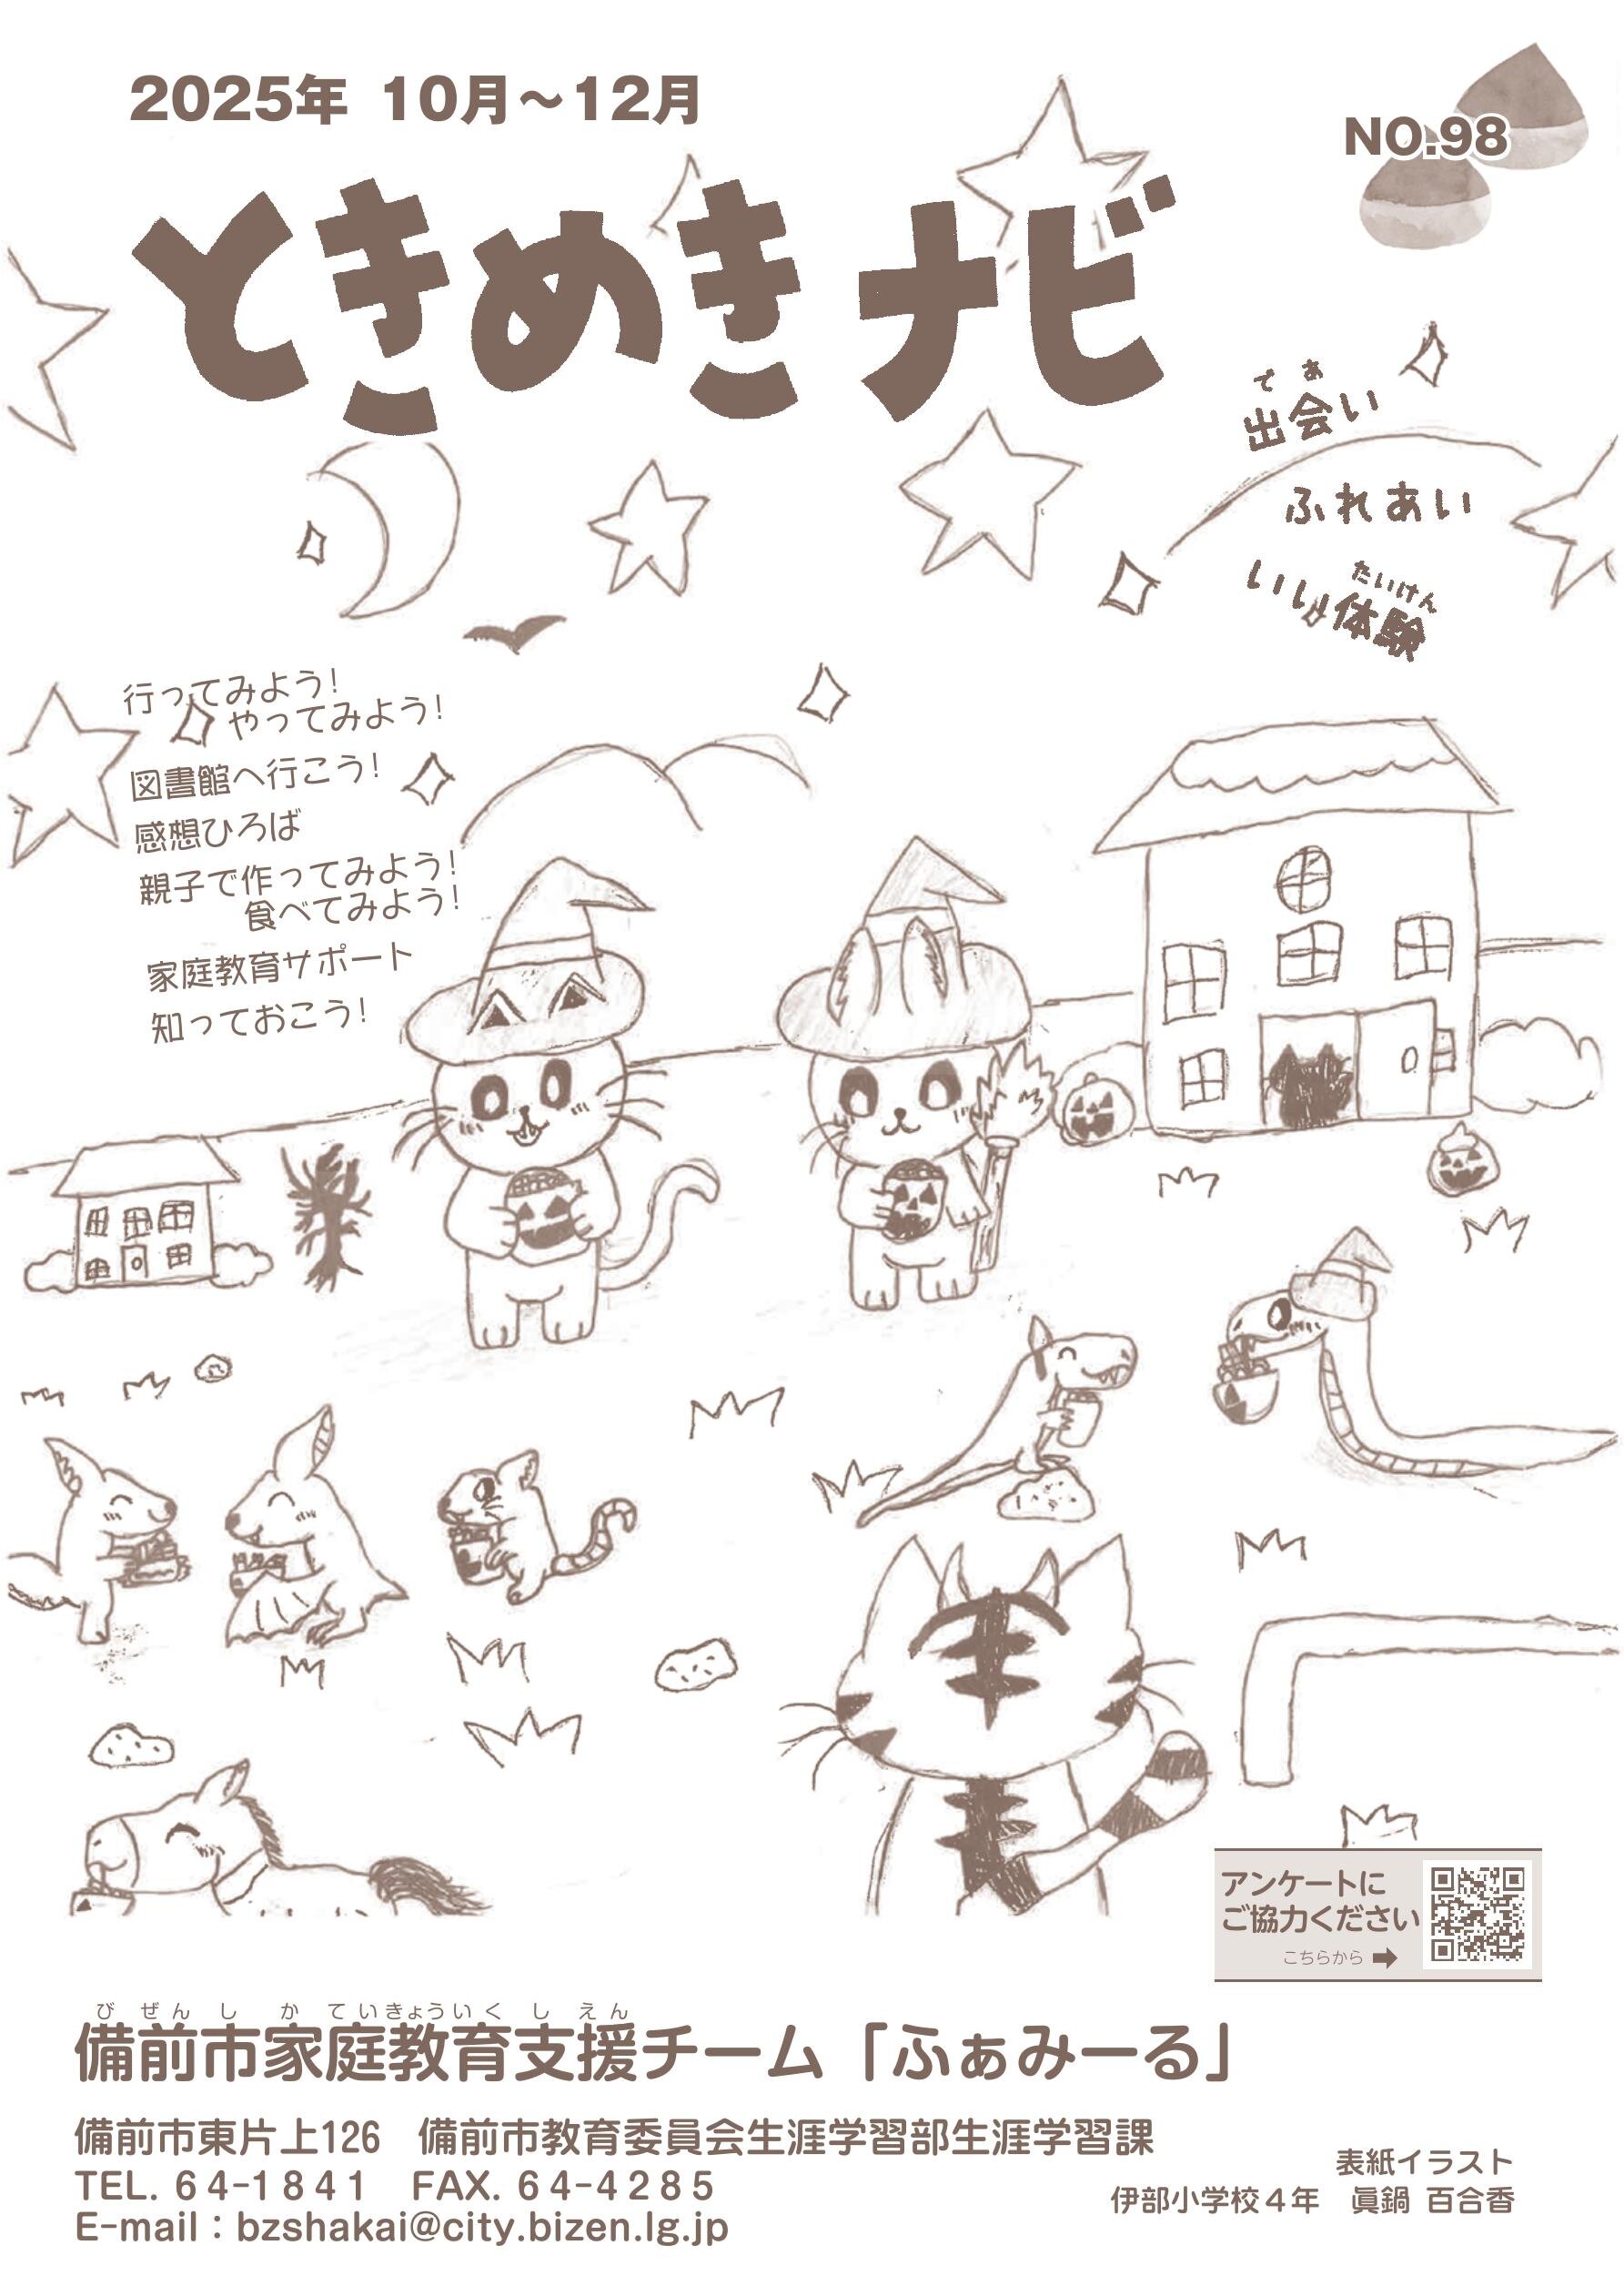 2025年 10月～12月
NO.98
ときめきナビ
であ
出会い
ふれあい
たいけん
いい体験
行ってみよう!
やってみよう!
図書館へ行こう!
感想ひろば
親子で作ってみよう!
食べてみよう!
家庭教育サポート
知っておこう!
アンケートに
ご協力ください
こちらから
びぜんしかていきょういくしえん
備前市家庭教育支援チーム「ふぁみーる」
備前市東片上126　備前市教育委員会生涯学習部生涯学習課
TEL. 64-1841　FAX. 64-4285
E-mail：bzshakai@city.bizen.lg.jp
表紙イラスト
伊部小学校4年　眞鍋 百合香